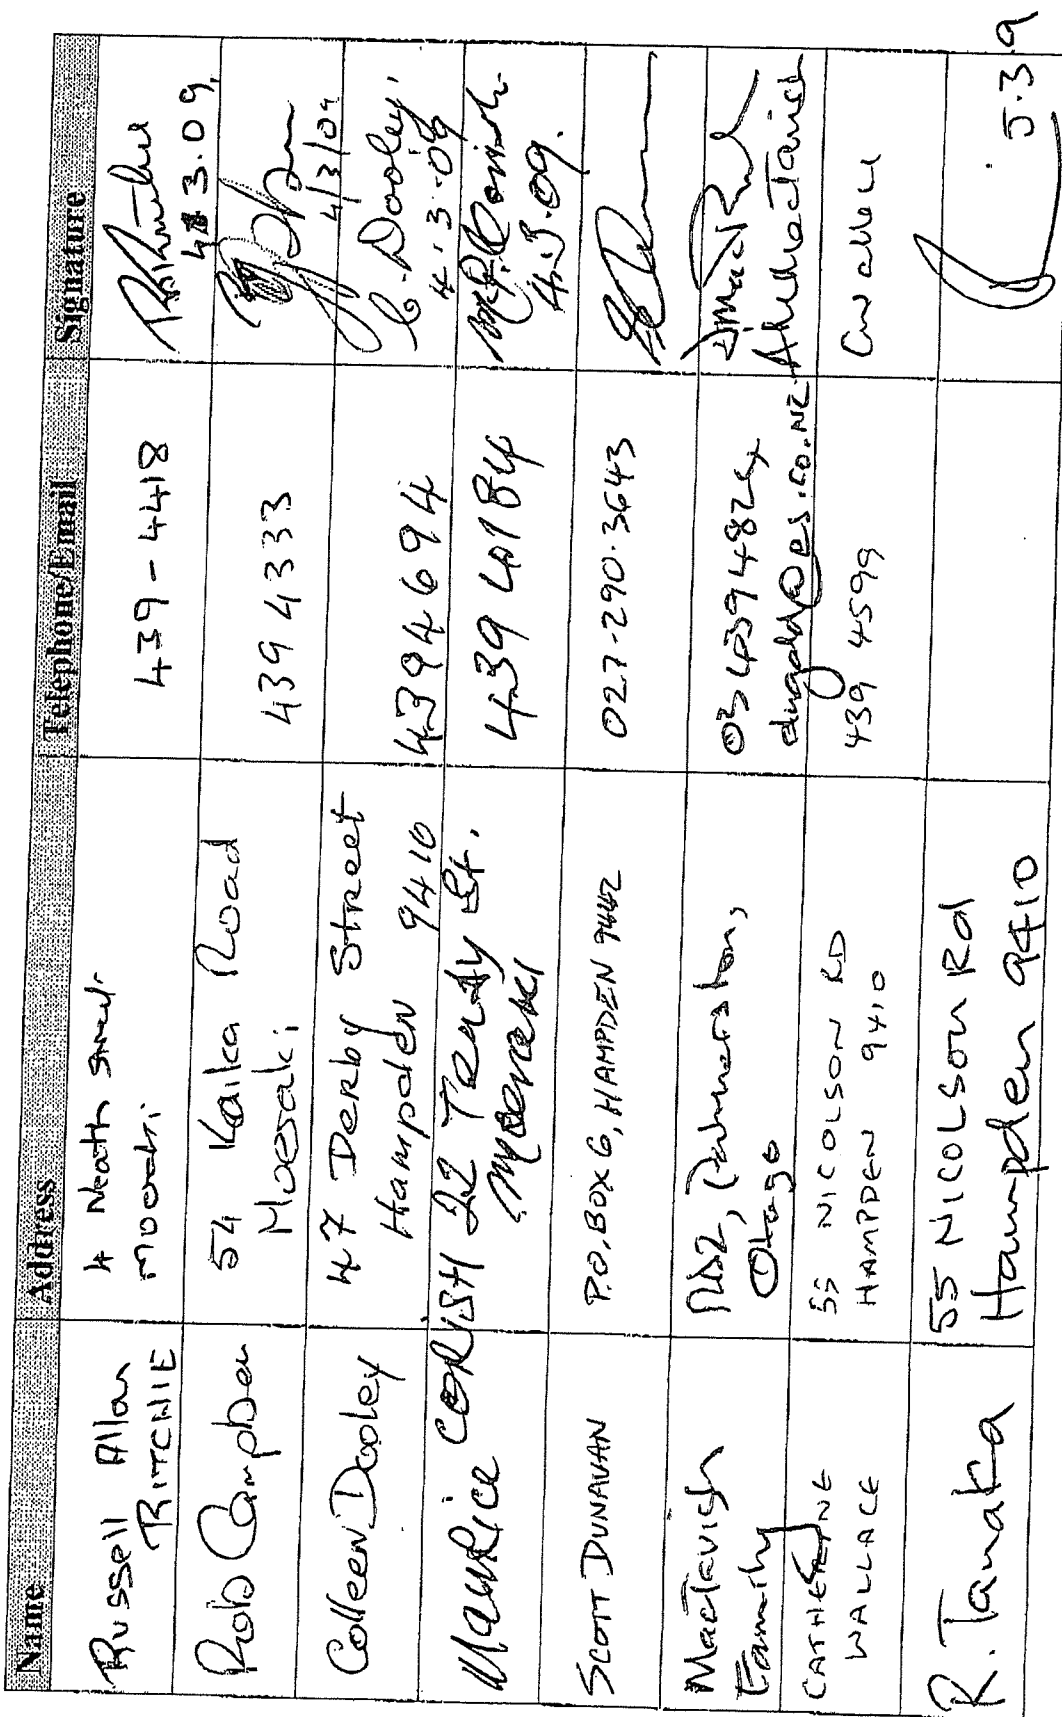 Name Address Telephone/Email Signature
Russell Allan RITCHIE 4 Neath Street Moeraki 439-4418 4.3.09
Rob Campbell 54 Kaika Road Moeraki 439 4333 4/3/09
Colleen Dooley 47 Derby Street Hampden 9410 4394694 C. Dooley. 4.3.09
Maurice CORISH 22 Tenby St. Moeraki 439 4184 4.3.09.
SCOTT DUNAVAN P.O. BOX 6, HAMPDEN 9442 027-290-3643
Mactavish Family RD2, Palmerston, Otago 03 4394824 @es.co.nz
CATHERINE WALLACE 55 NICOLSON RD HAMPDEN 9410 439 4599 CWallace
R. Tanaka 55 NICOLSON Rd Hampden 9410 5.3.9